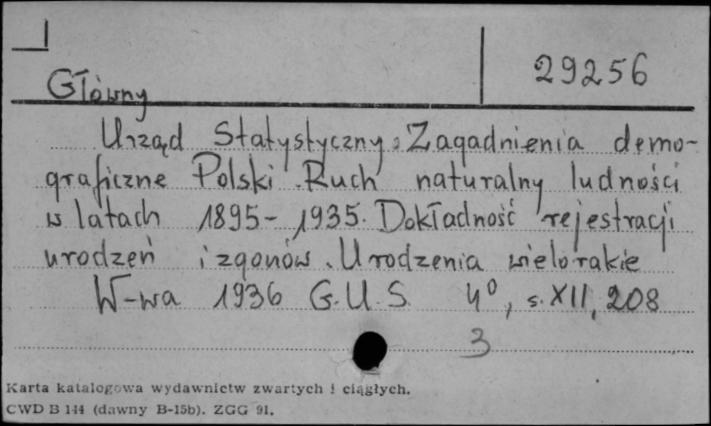 29256
Główny
Urząd Statystyczny: Zagadnienia demo-
graficzne Polski. Ruch naturalny ludności
w latach 1895-1935. Dokładność rejestracji
urodzeń i zgonów. Urodzenia wielorakie
W-wa 1936 G.U.S. 4°, s. XII, 208
3
Karta katalogowa wydawnictw zwartych i ciągłych.
CWD B 144 (dawny B-15b). ZGG 91.